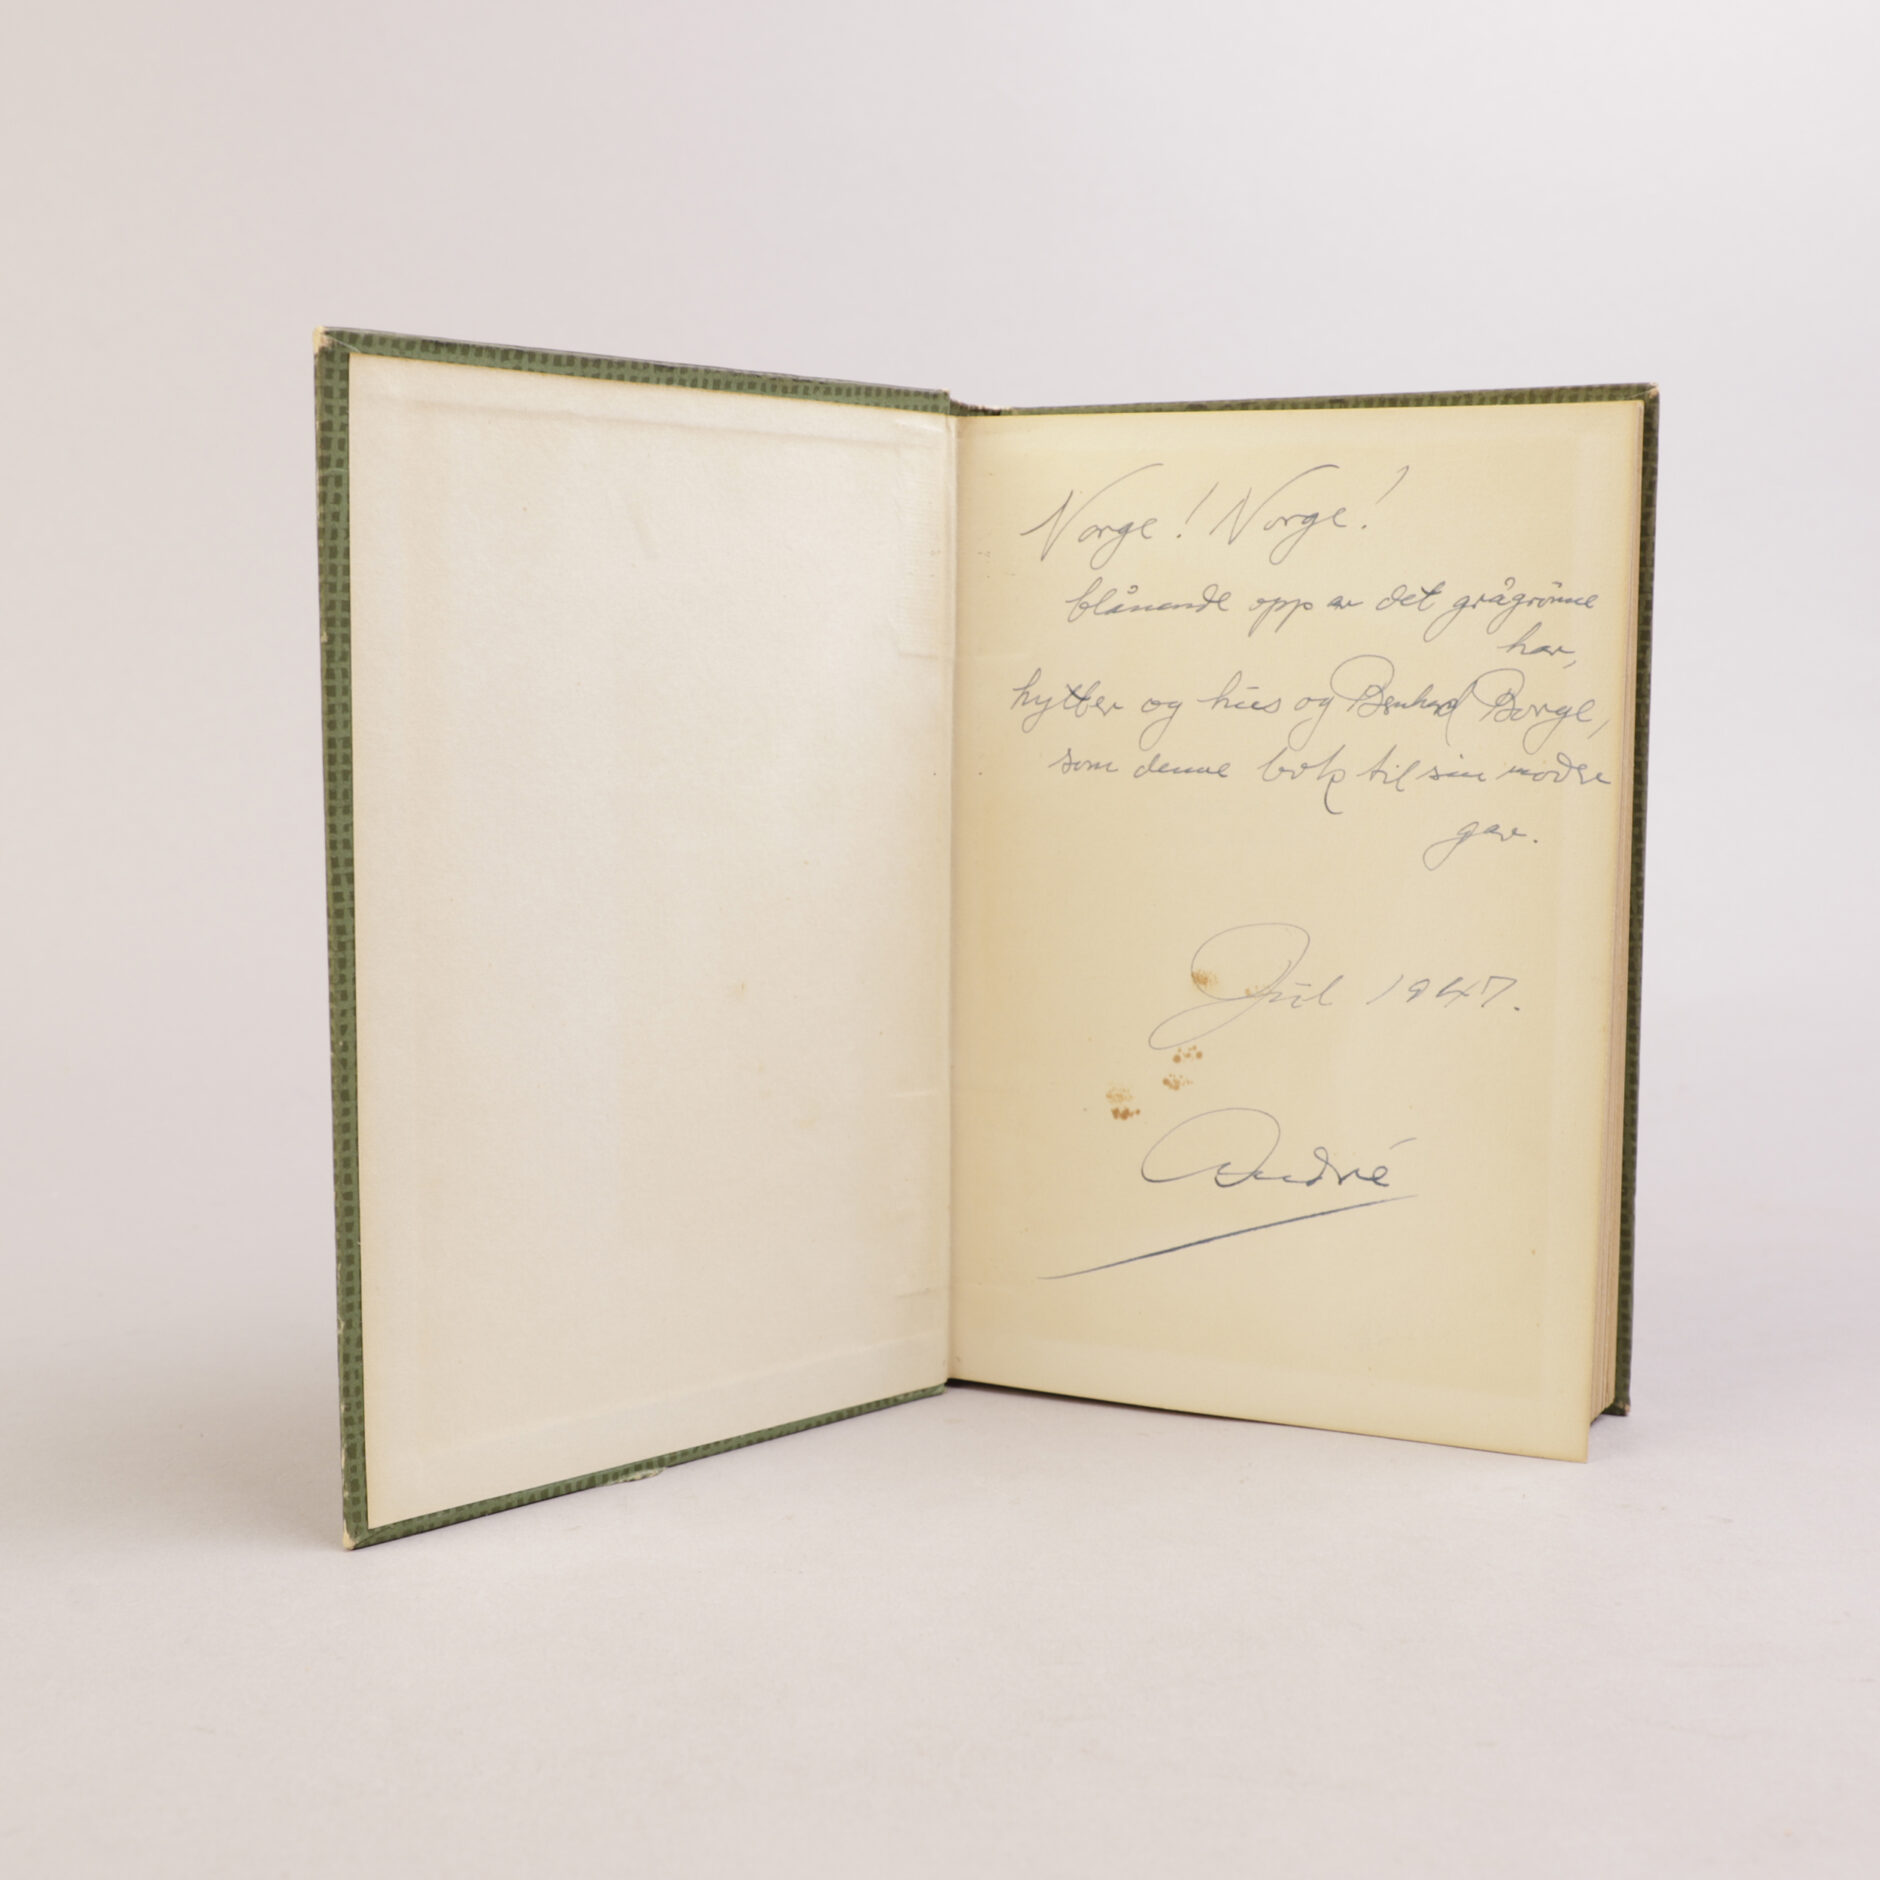 Norge! Norge!
blånende opp av det grågrønne
hav,
hytter og hus og Bernhard Borge,
som denne bok til sin moder
gav.
Jul 1947.
André